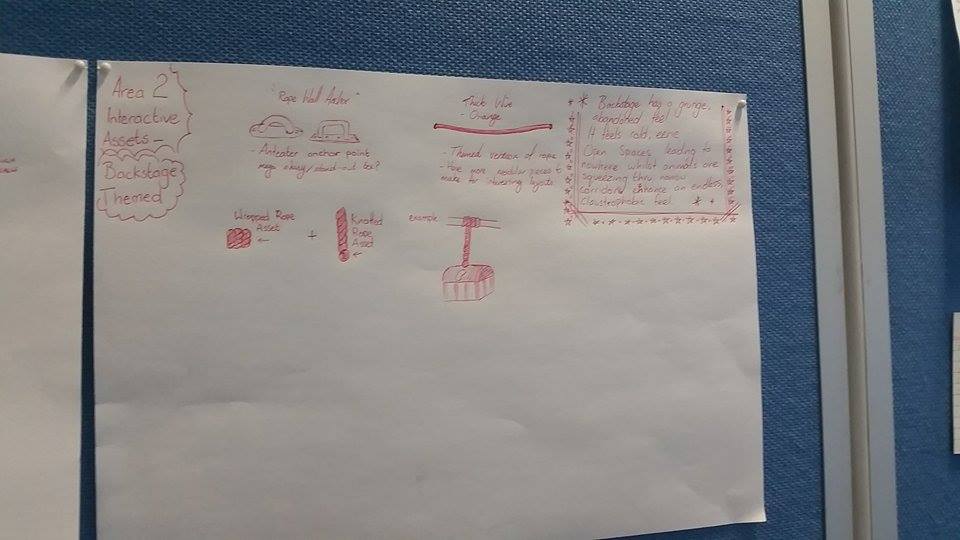 Area 2
Interactive
Assets -
Backstage
Themed
"Rope Wall Anchor"
- Anteater anchor point
Thick Wire
- Orange
- Themed version of rope
- Have more modular pieces to
make for interesting layouts
* Backstage has a grunge,
abandoned feel
It feels cold, eerie
Open Spaces leading to
nowhere whilst animals are
squeezing thru narrow
corridors enhance an endless,
claustrophobic feel. * *
Wrapped Rope
Asset
+
Knotted
Rope
Asset
example